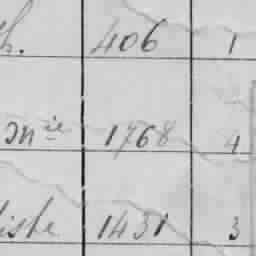 h. 406 1
Mie 1768 4
liste 1431 3